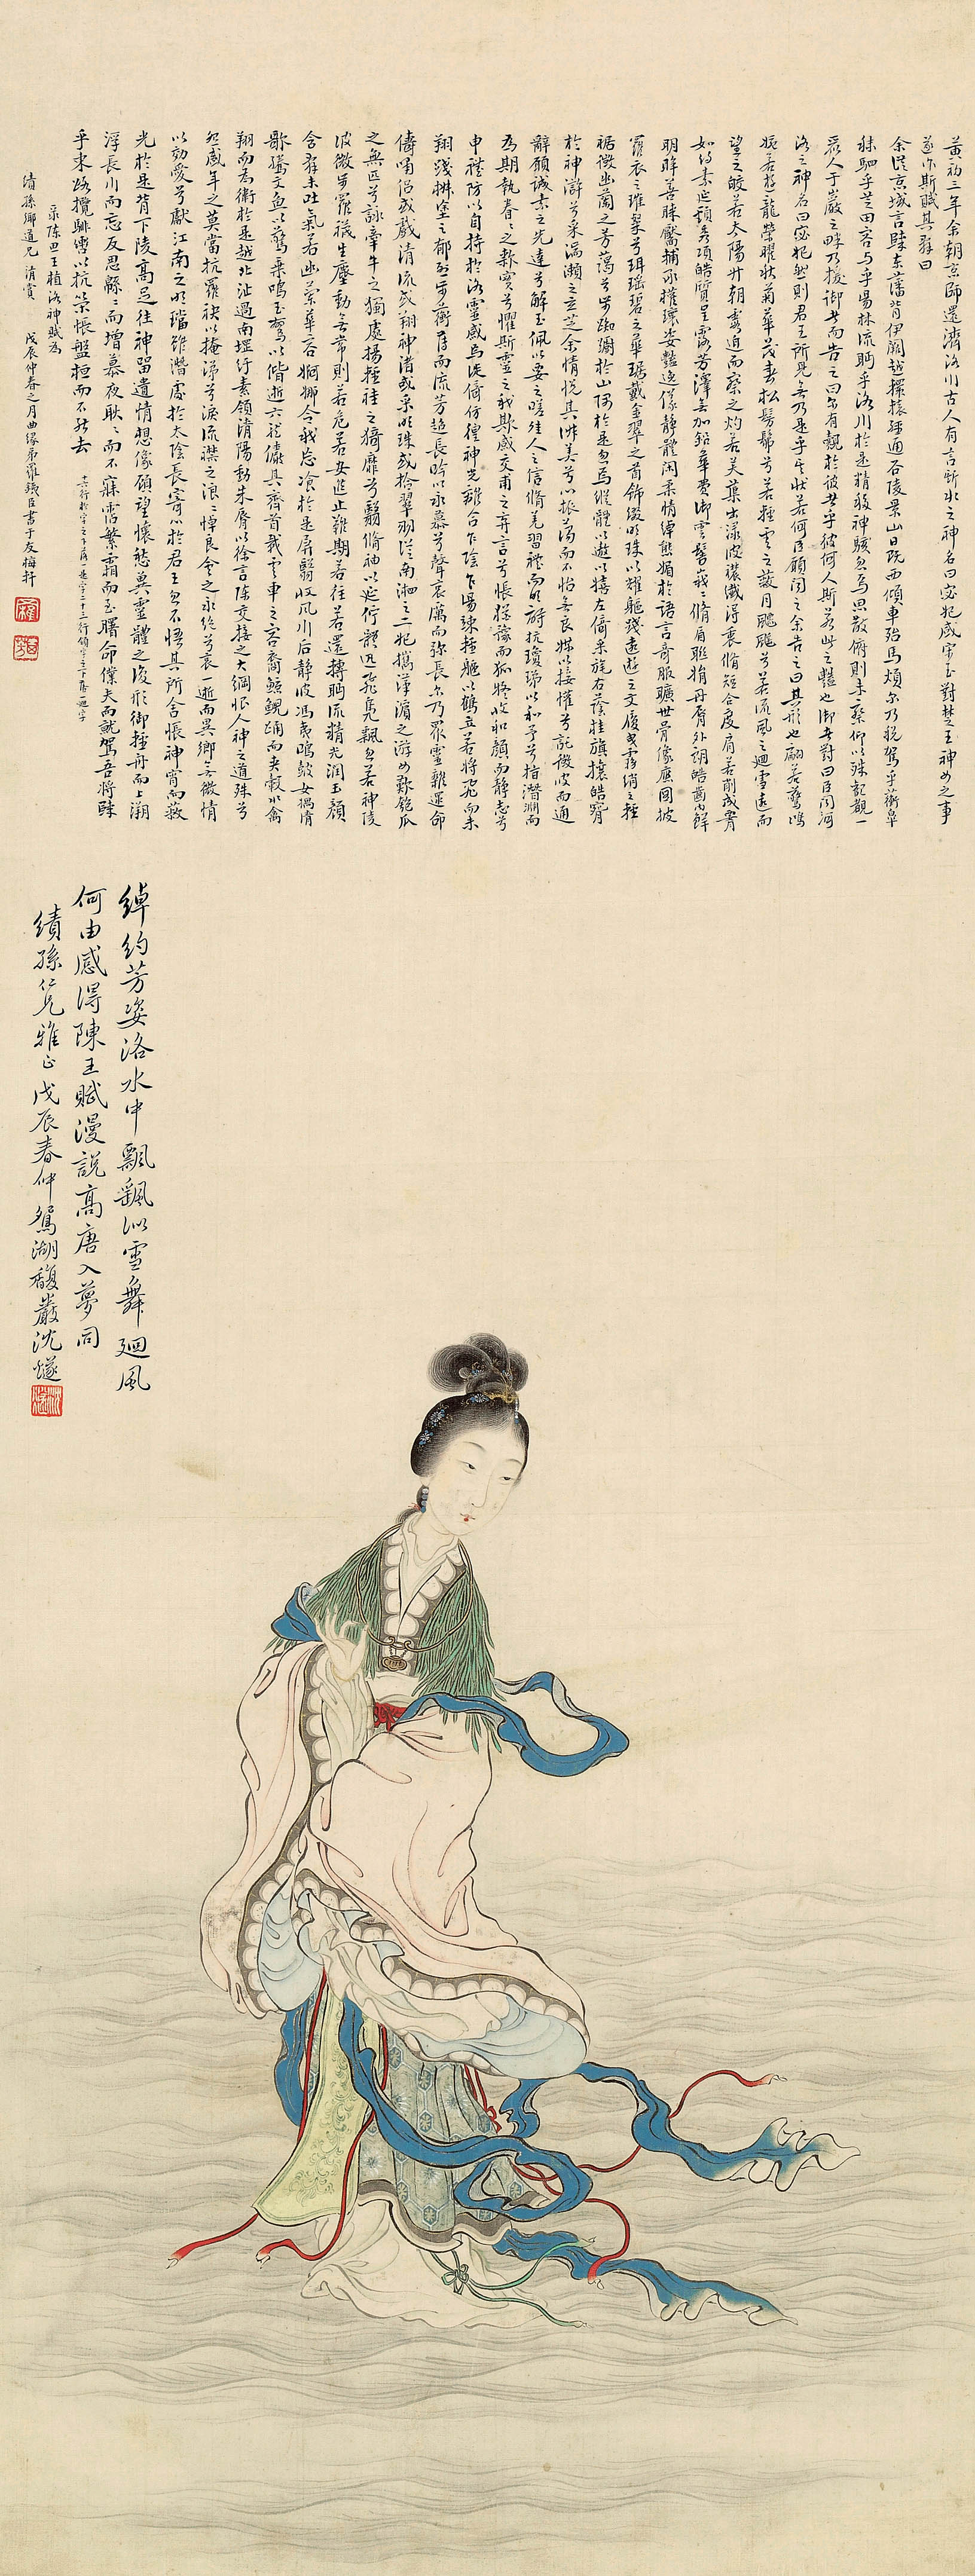 黃初三年余朝京師還濟洛川古人有言斯水之神名曰宓妃感宋玉對楚王神女之事
遂作斯賦其辭曰
余從京城言歸東藩背伊闕越轘轅經通谷陵景山日既西傾車殆馬煩尔乃稅駕乎蘅皋
秣駟乎芝田容与乎楊林流眄乎洛川於是精移神駭忽焉思散俯則未察仰以殊觀覩一
麗人于巖之畔乃援御者而告之曰尔有覿於彼者乎彼何人斯若此之豔也御者對曰臣聞河
洛之神名曰宓妃然則君王所見無乃是乎其狀若何臣願聞之余告之曰其形也翩若驚鴻
婉若游龍榮曜秋菊華茂春松髣髴兮若輕雲之蔽月飄飄兮若流風之迴雪遠而
望之皎若太陽升朝霞迫而察之灼若芙蕖出淥波襛纖得衷脩短合度肩若削成腰
如約素延頸秀項皓質呈露芳澤無加鉛華弗御雲髻峩々脩眉聯娟丹脣外朗皓齒內鮮
明眸善睞靨輔承權瓌姿豔逸儀靜體閑柔情綽態媚於語言奇服曠世骨像應圖披
羅衣之璀粲兮珥瑤碧之華琚戴金翠之首飾綴明珠以耀軀踐遠遊之文履曳霧綃之輕
裾微幽蘭之芳藹兮步踟躕於山隅於是忽焉縱體以遨以嬉左倚采旄右蔭桂旗攘皓腕
於神滸兮采湍瀨之玄芝余情悅其淑美兮心振蕩而不怡無良媒以接懽兮託微波而通
辭願誠素之先達兮解玉佩以要之嗟佳人之信脩羌習禮而明詩抗瓊珶以和予兮指潛淵而
為期執眷々之款實兮懼斯靈之我欺感交甫之棄言兮悵猶豫而狐疑收和顏而靜志兮
申禮防以自持於洛靈感焉徙倚彷徨神光離合乍陰乍陽竦輕軀以鶴立若將飛而未
翔踐椒塗之郁烈步蘅薄而流芳超長吟以永慕兮聲哀厲而彌長尔乃眾靈雜遝命
儔嘯侶或戲清流或翔神渚或采明珠或拾翠羽從南湘之二妃攜漢濱之游女歎匏瓜
之無匹兮詠牽牛之獨處揚輕袿之猗靡兮翳脩袖以延佇體迅飛鳧飄忽若神陵
波微步羅襪生塵動無常則若危若安進止難期若往若還轉眄流精光潤玉顏
含辭未吐氣若幽蘭華容婀娜令我忘飡於是屏翳收風川后靜波馮夷鳴鼓女媧清
歌騰文魚以警乘鳴玉鸞以偕逝六龍儼其齊首載雲車之容裔鯨鯢踊而夾轂水禽
翔而為衛於是越北沚過南堈紆素領清陽動朱脣以徐言陳交接之大綱恨人神之道殊兮
怨盛年之莫當抗羅袂以掩涕兮淚流襟之浪々悼良會之永絕兮哀一逝而異鄉無微情
以効愛兮獻江南之明璫雖潛處於太陰長寄心於君王忽不悟其所舍悵神宵而蔽
光於是背下陵高足往神留遺情想像顧望懷愁冀靈體之復形御輕舟而上溯
浮長川而忘反思緜々而增慕夜耿々而不寐霑繁霜而至曙命僕夫而就駕吾將歸
乎東路攬騑轡以抗策悵盤桓而不能去
十六行於字之下落一是字二十三行領字之下落迴字
录陳思王植洛神賦為
績孫鄉道兄清賞 戊辰仲春之月曲緣弟羅鐵臣書于友梅軒
綽約芳姿洛水中飄飖似雪舞迴風
何由感得陳王賦漫說高唐入夢同
績孫仁兄雅正戊辰春仲鴛湖馥巖沈燧